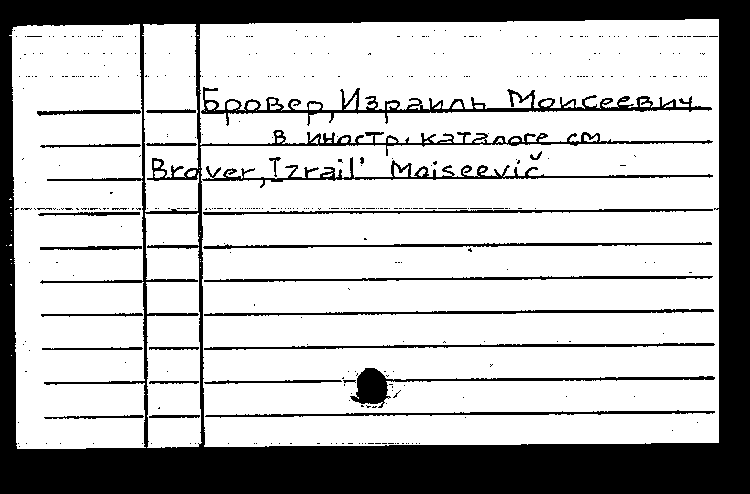 Бровер, Израиль Моисеевич
в иностр. каталоге см.
Brover, Izrail' Moiseevič